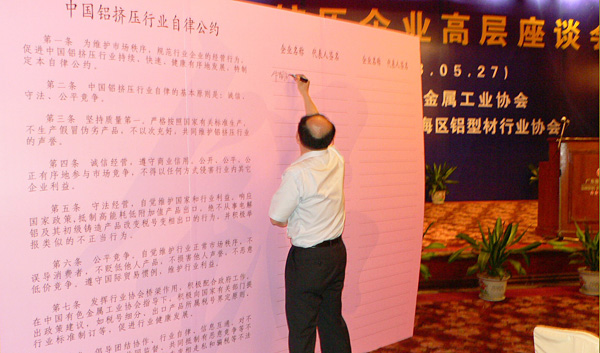 中国铝挤压行业自律公约
第一条 为维护市场秩序，规范行业企业的经营行为，
促进中国铝挤压行业持续、快速、健康有序地发展，特制
定本自律公约。
第二条 中国铝挤压行业自律的基本原则是：诚信、
守法、公平竞争。
第三条 坚持质量第一，严格按照国家有关标准生产，
不生产假冒伪劣产品，不以次充好，共同维护铝挤压行业
的声誉。
第四条 诚信经营，遵守商业信用，公开、公平、公
正有序地参与市场竞争，不得以任何方式侵害行业内其它
企业利益。
第五条 守法经营，自觉维护国家和行业利益，响应
国家政策，抵制高能耗低附加值产品出口，绝不从事电解
铝及其初级铸造产品改变税号变相出口的行为，并积极举
报类似的不正当行为。
第六条 公平竞争，自觉维护行业正常市场秩序，不
误导消费者，不贬低他人产品，不损害他人声誉，不恶意
低价竞争，遵守国际贸易惯例，维护行业利益。
第七条 发挥行业协会桥梁作用，积极配合政府工作，
在中国有色金属工业协会指导下，积极向国家有关部门提
出政策建议，如税号细分、出口产品所属税号界定原则、
行业标准制订等，促进行业健康发展。
倡导团结协作，行业自律，信息互通，对不
企业名称 代表人签名
企业名称 代表人签名
挤压企业高层座谈会
.05.27)
金属工业协会
海区铝型材行业协会